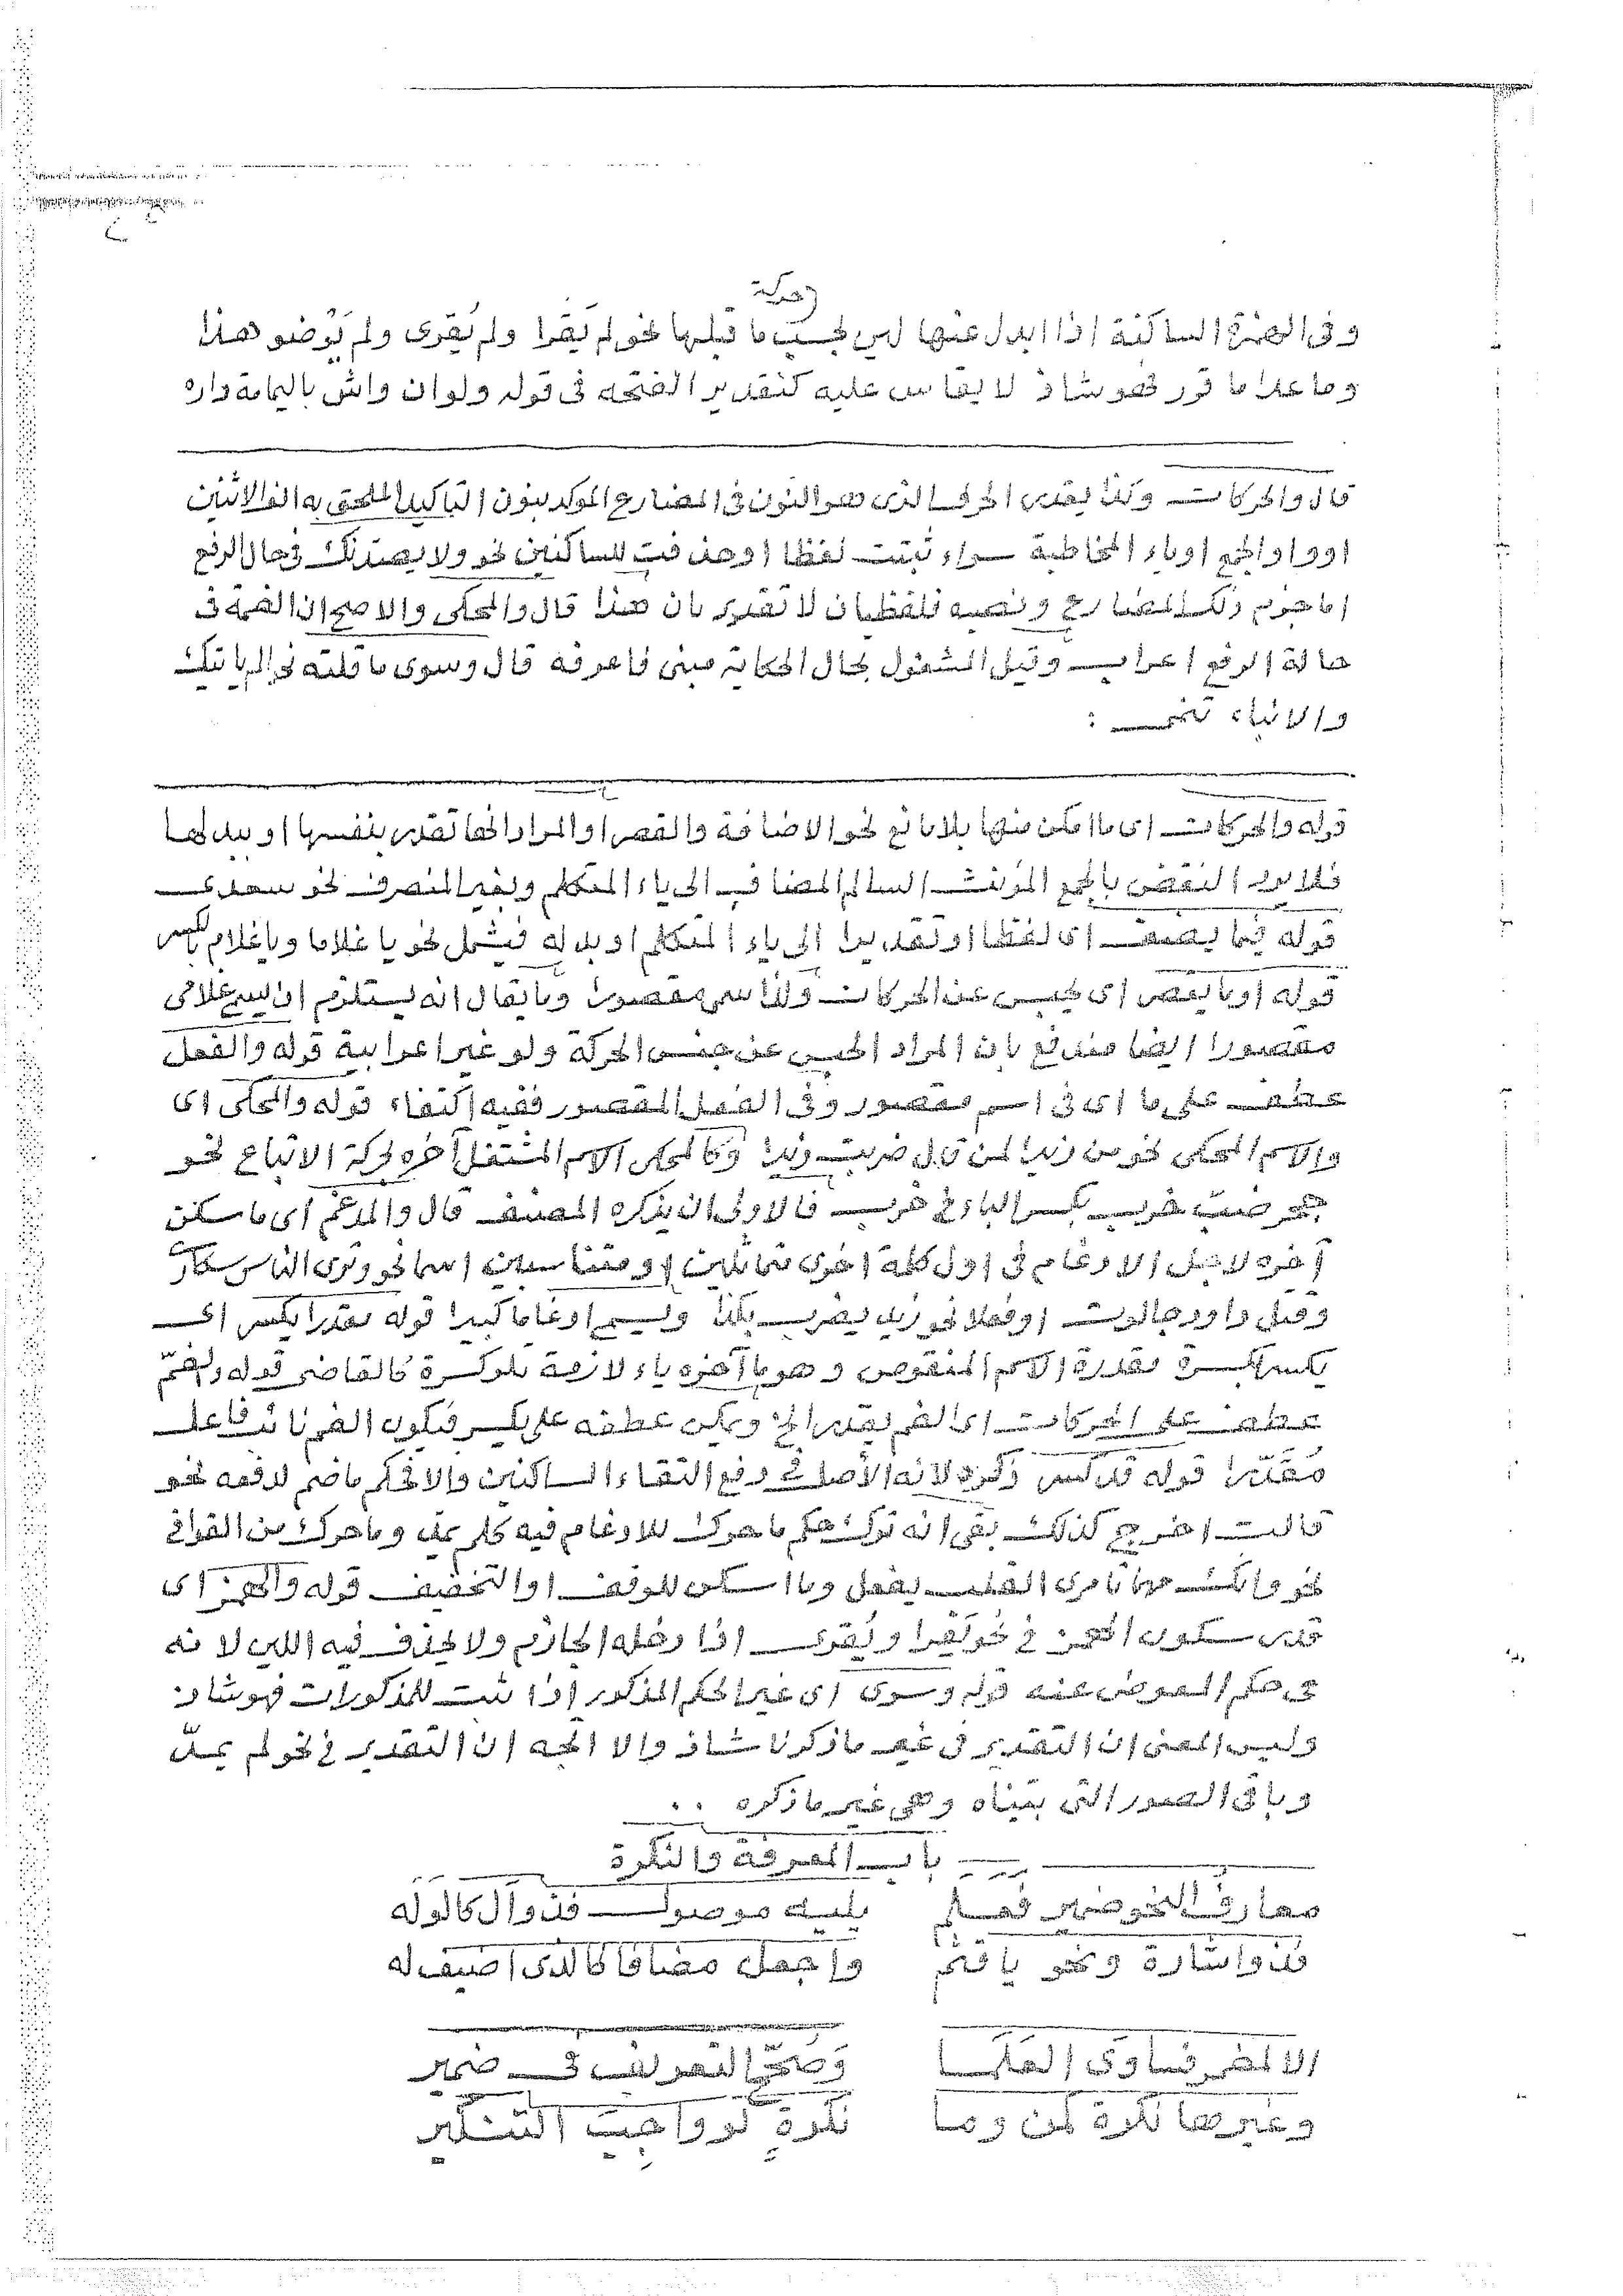 حركة
وفى الهمزة الساكنة اذا ابدل عنها لين بحسب ما قبلها نحو لم يَقرا ولم يُقرى ولم يَوْضو هذا
وما عدا ما قرر فهو شاذ لا يقاس عليه كتقدير الفتحه فى قوله ولو ان واش باليمامة داره
قال والحركات وكذا يقدر الحرف الذى هو النون فى المضارع الموكد بنون التاكيد الملحق به الف الاثنين
او واو الجمع او ياء المخاطبة سواء ثبتت لفظا او حذفت للساكنين نحو ولا يصدنك فى حال الرفع
اما جزم ذلك المضارع ونصبه فلفظيان لا تقديريان هذا قال والمحكى والاصح ان الضمة فى
حالة الرفع اعراب وقيل المشغول بحال الحكاية مبنى فاعرفه قال وسوى ما قلته نحو الم ياتيك
والانباء تنمى :
قوله والحركات اى ما امكن منها بلا مانع نحو الاضافة والقصر او المراد انها تقدر بنفسها او ببدلها
فلا يرد النقض بالجمع المؤنث السالم المضاف الى ياء المتكلم وبغير المنصرف نحو سعدى
قوله فيما يضف اى لفظا او تقديرا الى ياء المتكلم او بدله فيشمل نحو يا غلاما ويا غلام بكسر
قوله او ما يقصر اى يحبس عن الحركات ولذا سمى مقصورا وما يقال انه يستلزم ان يسمى غلامى
مقصورا ايضا مندفع بان المراد الحبس عن جنس الحركة ولو غير اعرابية قوله والفعل
عطف على ما اى فى اسم مقصور وفى الفعل المقصور ففيه اكتفاء قوله والمحكى اى
والاسم المحكى نحو من زيدا لمن قال ضربت زيدا وكالمحكى الاسم المشتغل آخره بحركة الاتباع نحو
جحر ضبّ خرب بكسر الباء فى خرب فالاولى ان يذكره المصنف قال والمدغم اى ما سكن
آخره لاجل الادغام فى اول كلمة اخرى متماثلين او متناسبين اسما نحو وترى الناس سكارى
وقتل داود جالوت او فعلا نحو زيد يضرب بكذا ويسمى ادغاما كبيرا قوله مقدرا يكسر اى
يكسر بكسرة مقدرة الاسم المنقوص وهو ما آخره ياء لازمة تلو كسرة كالقاضى قوله والضمّ
عطف على الحركات اى الضم يقدر الخ ويمكن عطفه على يكسر فيكون الضم نائب فاعل
مُقَدّرا قوله قد كسر ذكره لانه الأصل فى دفع التقاء الساكنين والا فحكم ما ضم لدفعه نحو
قالت اخرج كذلك بقى انه ترك حكم ما حرك للادغام فيه كلم يمد وما حرك من القوافى
نحو وانك مهما تامرى القلب يفعل وما اسكن للوقف او التخفيف قوله والهمز اى
قدر سكون الهمز فى نحو يَقرا ويُقرى اذا دخله الجازم ولا يحذف فيه اللين لانه
فى حكم المعوض عنه قوله وسوى اى غير الحكم المذكور اذا ثبت للمذكورات فهو شاذ
وليس المعنى ان التقدير فى غير ما ذكرنا شاذ والا اتجه ان التقدير فى نحو لم يمدّ
وباقى الصور التى بيّناه وهى غير ما ذكره ..
باب المعرفة والنكرة
معارف النحو ضمير فعلم    يليه موصول فذو ال كالوله
فذو اشارة ونحو يا قثم    واجعل مضافا كالذى اضيف له
الا المضمر فساوى العلما    وَصَحَّ التعريف فى ضمير
وغيرها نكرة كمن وما    نكرةٍ لو واجبَ التنكير